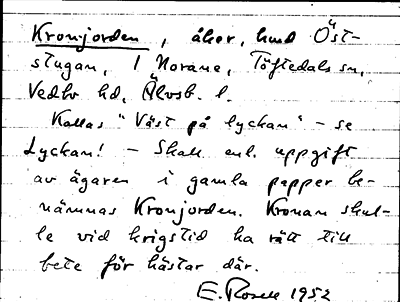 Kronjorden, åker, hmd Öst-
stugan, 1 Norane, Töftedals sn,
Vedbo hd, Älvsb. l.
Kallas "Väst på lyckan" - se
Lyckan! - Skall enl. uppgift
av ägaren i gamla papper be-
nämnas Kronjorden. Kronan skul-
le vid krigstid ha rätt till
bete för hästar där.
E. Rosell 1952